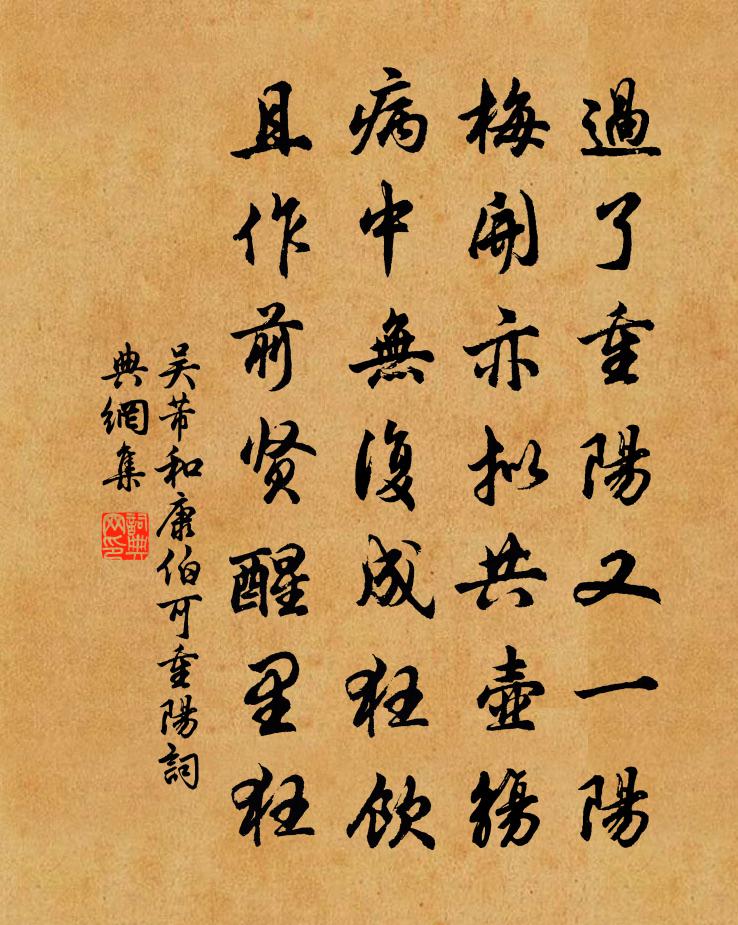 過了重陽又一陽
梅開亦拟共壺觴
病中無復成狂飲
且作前贤醒里狂
吴芾和康伯可重陽詞
典網集
詞典
网印